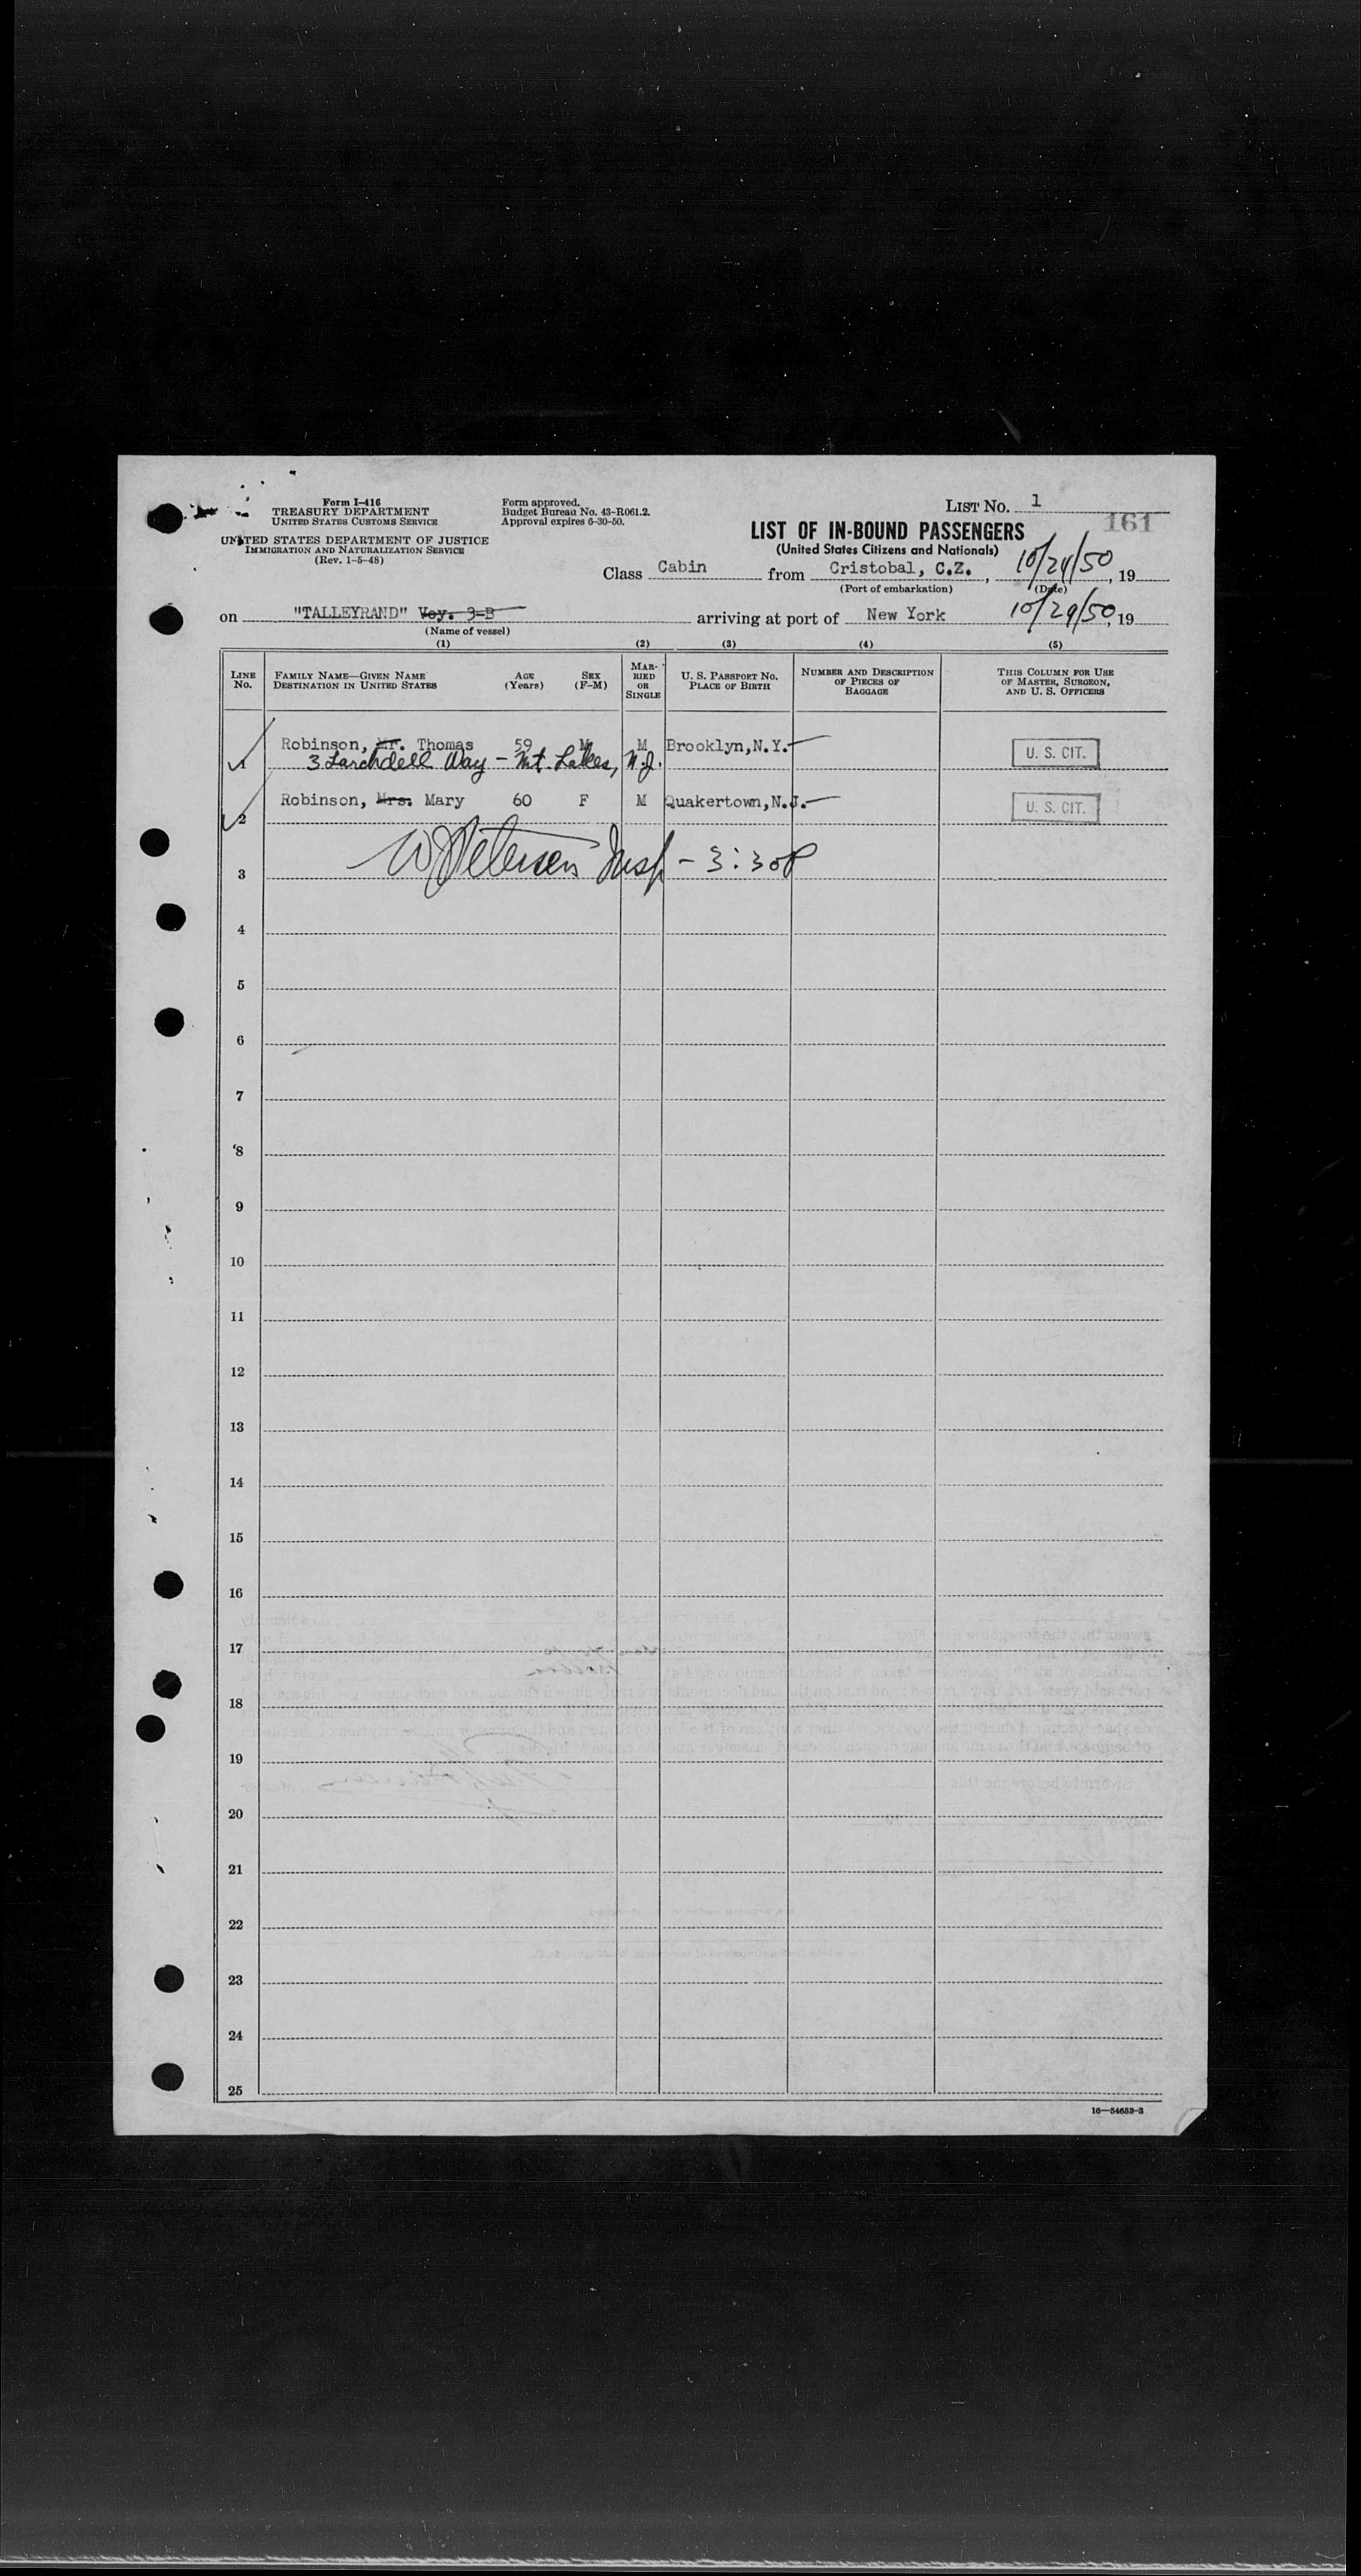 Form I-416
TREASURY DEPARTMENT
UNITED STATES CUSTOMS SERVICE
UNITED STATES DEPARTMENT OF JUSTICE
IMMIGRATION AND NATURALIZATION SERVICE
(Rev. 1-5-48)
Form approved.
Budget Bureau No. 43-R061.2.
Approval expires 6-30-50.
LIST No. 1
161
LIST OF IN-BOUND PASSENGERS
(United States Citizens and Nationals)
Class Cabin from Cristobal, C.Z., 10/24/50, 19
(Port of embarkation) (Date)
on "TALLEYRAND" Voy. 3-B arriving at port of New York 10/29/50, 19
(Name of vessel)
(1) (2) (3) (4) (5)
LINE No. FAMILY NAME—GIVEN NAME DESTINATION IN UNITED STATES AGE (Years) SEX (F-M) MARRIED OR SINGLE U. S. PASSPORT No. PLACE OF BIRTH NUMBER AND DESCRIPTION OF PIECES OF BAGGAGE THIS COLUMN FOR USE OF MASTER, SURGEON, AND U. S. OFFICERS
Robinson, Mr. Thomas 59 M M Brooklyn, N.Y. U. S. CIT.
1 3 Larchdell Way - Mt. Lakes, N.J.
Robinson, Mrs. Mary 60 F M Quakertown, N.J. U. S. CIT.
2
W J Petersen Insp - 3:30P
3
4
5
6
7
8
9
10
11
12
13
14
15
16
17
18
19
20
21
22
23
24
25
16—54652-3